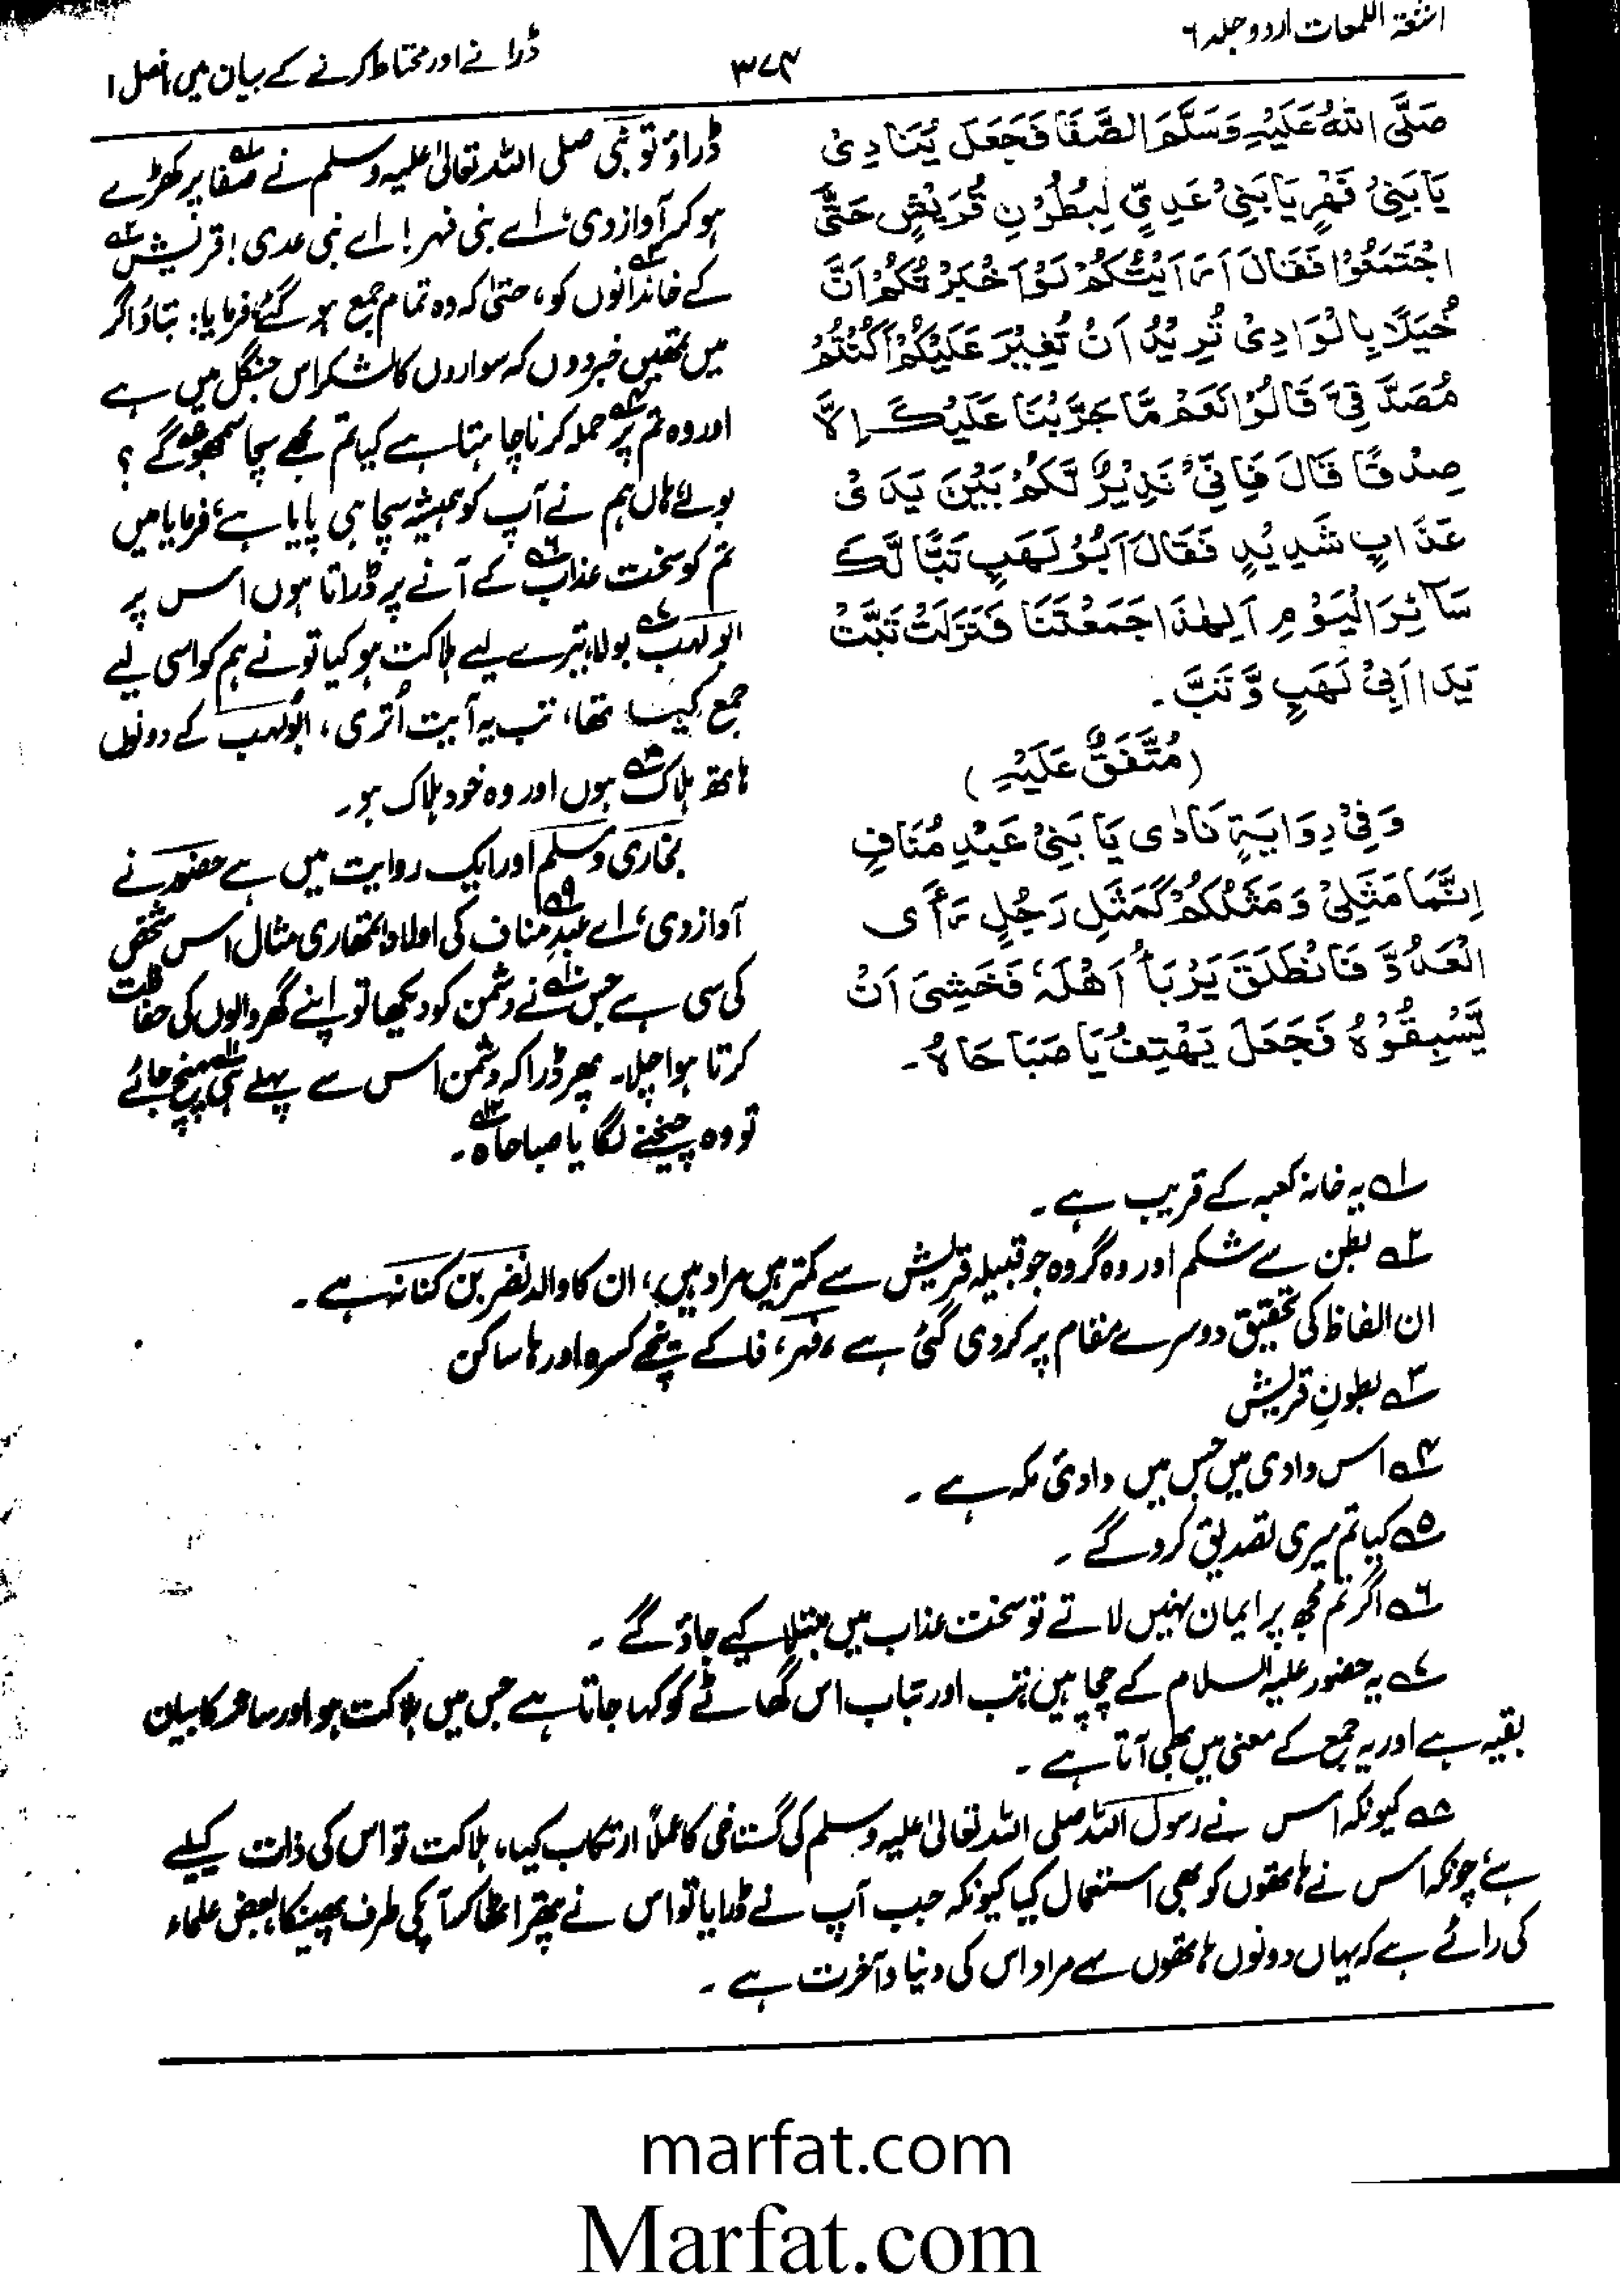 اشعۃ اللمعات اردو جلد ۶
۳۷۴
ڈرانے اور محتاط کرنے کے بیان میں فصل ۱
صَلَّی اللّٰہُ عَلَیْہِ وَسَلَّمَ الصَّفَا فَجَعَلَ یُنَادِیْ
یَا بَنِیْ فَھْرٍ یَا بَنِیْ عَدِیٍّ لِبُطُوْنِ قُرَیْشٍ حَتّٰی
اجْتَمَعُوْا فَقَالَ اَرَاَیْتُکُمْ لَوْ اَخْبَرْتُکُمْ اَنَّ
خَیْلًا بِالْوَادِیْ تُرِیْدُ اَنْ تُغِیْرَ عَلَیْکُمْ اَکُنْتُمْ
مُصَدِّقِیَّ قَالُوْا نَعَمْ مَّا جَرَّبْنَا عَلَیْکَ اِلَّا
صِدْقًا قَالَ فَاِنِّیْ نَذِیْرٌ لَّکُمْ بَیْنَ یَدَیْ
عَذَابٍ شَدِیْدٍ فَقَالَ اَبُوْ لَھَبٍ تَبًّا لَّکَ
سَآئِرَ الْیَوْمِ اَلِھٰذَا جَمَعْتَنَا فَنَزَلَتْ تَبَّتْ
یَدَا اَبِیْ لَھَبٍ وَّ تَبَّ۔
(مُتَّفَقٌ عَلَیْہِ)
وَفِیْ رِوَایَۃٍ نَادٰی یَا بَنِیْ عَبْدِ مُنَافٍ
اِنَّمَا مَثَلِیْ وَمَثَلُکُمْ کَمَثَلِ رَجُلٍ رَأَی
الْعَدُوَّ فَانْطَلَقَ یَرْبَأُ اَھْلَہٗ فَخَشِیَ اَنْ
یَّسْبِقُوْہُ فَجَعَلَ یَھْتِفُ یَا صَبَاحَاہُ۔
ڈراؤ تو نبی صلی اللہ تعالیٰ علیہ وسلم نے صفا۱ پر کھڑے
ہو کر آواز دی، اے بنی فہر! اے بنی عدی! قریش۲
کے خاندانوں۳ کو، حتیٰ کہ وہ تمام جمع ہو گئے، فرمایا: بتاؤ اگر
میں تمھیں خبر دوں کہ سواروں کا لشکر اس جنگل میں ہے
اور وہ تم پر۴ حملہ کرنا چاہتا ہے کیا تم مجھے سچا سمجھو۵ گے؟
بولے ہاں ہم نے آپ کو ہمیشہ سچا ہی پایا ہے، فرمایا میں
تم کو سخت عذاب۶ کے آنے پر ڈراتا ہوں اس پر
ابولہب۷ بولا، تیرے لیے ہلاکت ہو کیا تو نے ہم کو اسی لیے
جمع کیا تھا، تب یہ آیت اُتری، ابولہب کے دونوں
ہاتھ ہلاک۸ ہوں اور وہ خود ہلاک ہو۔
بخاری و مسلم اور ایک روایت میں ہے حضور نے
آواز دی، اے عبد مناف۹ کی اولاد! تمھاری مثال اس شخص
کی سی ہے جس۱۰ نے دشمن کو دیکھا تو اپنے گھر والوں کی حفاظت
کرتا ہوا چلا۔ پھر ڈرا کہ دشمن اس سے پہلے ہی۱۱ پہنچ جائے
تو وہ چیخنے لگا یا صباحاہ۱۲۔
۱ یہ خانہ کعبہ کے قریب ہے۔
۲ بطن سے شکم اور وہ گروہ جو قبیلہ قریش سے کمتر ہیں مراد ہیں، ان کا والد نضر بن کنانہ ہے۔
ان الفاظ کی تحقیق دوسرے مقام پر کر دی گئی ہے، فہر، فا کے نیچے کسرہ اور ہا ساکن
۳ بطونِ قریش
۴ اس وادی میں جس میں وادیٔ مکہ ہے۔
۵ کیا تم میری تصدیق کرو گے۔
۶ اگر تم مجھ پر ایمان نہیں لاتے تو سخت عذاب میں مبتلا کیے جاؤ گے۔
۷ یہ حضور علیہ السلام کے چچا ہیں تب اور تباب اس گھاٹے کو کہا جاتا ہے جس میں ہلاکت ہو اور سائر کا بیان
بقیہ ہے اور یہ جمع کے معنی میں بھی آتا ہے۔
۸ کیونکہ اس نے رسول اللہ صلی اللہ تعالیٰ علیہ وسلم کی گستاخی کا عملاً ارتکاب کیا، ہلاکت تو اس کی ذات کیلئے
ہے، چونکہ اس نے ہاتھوں کو بھی استعمال کیا کیونکہ جب آپ نے ڈرایا تو اس نے پتھر اٹھا کر آپ کی طرف پھینکا، بعض علماء
کی رائے ہے کہ یہاں دونوں ہاتھوں سے مراد اس کی دنیا و آخرت ہے۔
marfat.com
Marfat.com